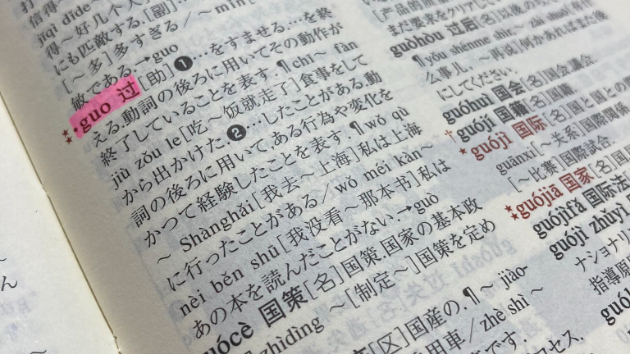 得~好几个人
にも匹敵する.[副]
[~多]多すぎる/~
敵である.→guo
·guo 过 [助] ❶…をすませる.…を終
える.動詞の後ろに用いてその動作が
終了していることを表す.¶chī ~ fàn
jiù zǒu le[吃~饭就走了]食事をして
から出かけた. ❷…したことがある.動
詞の後ろに用いて,ある行為や変化を
かつて経験したことを表す.¶wǒ qù
~ Shànghǎi[我去~上海]私は上海
に行ったことがある/wǒ méi kàn ~
nèi běn shū[我没看~那本书]私は
あの本を読んだことがない→guò
guócè 国策[名]国策.国家の基本政
zhìdìng ~[制定~]国策を定め
[区]国産の.¶~ jiào-
用車/zhè shì ~
です.
guòhòu 过后[名]以後.
¶yǒu shénme shìr,
么事儿,~再说]何かあればまた後
にしてください.
guóhuì 国会[名]国会.議会.
guójí 国籍[名]国籍.
guójì 国际[名]国と国との
guānxi[~关系]国際関係
[~比赛]国際試合.
guójiā 国家[名]国
guójìfǎ 国际法
guójì zhǔyì
ナショナリ
指導原
セス.